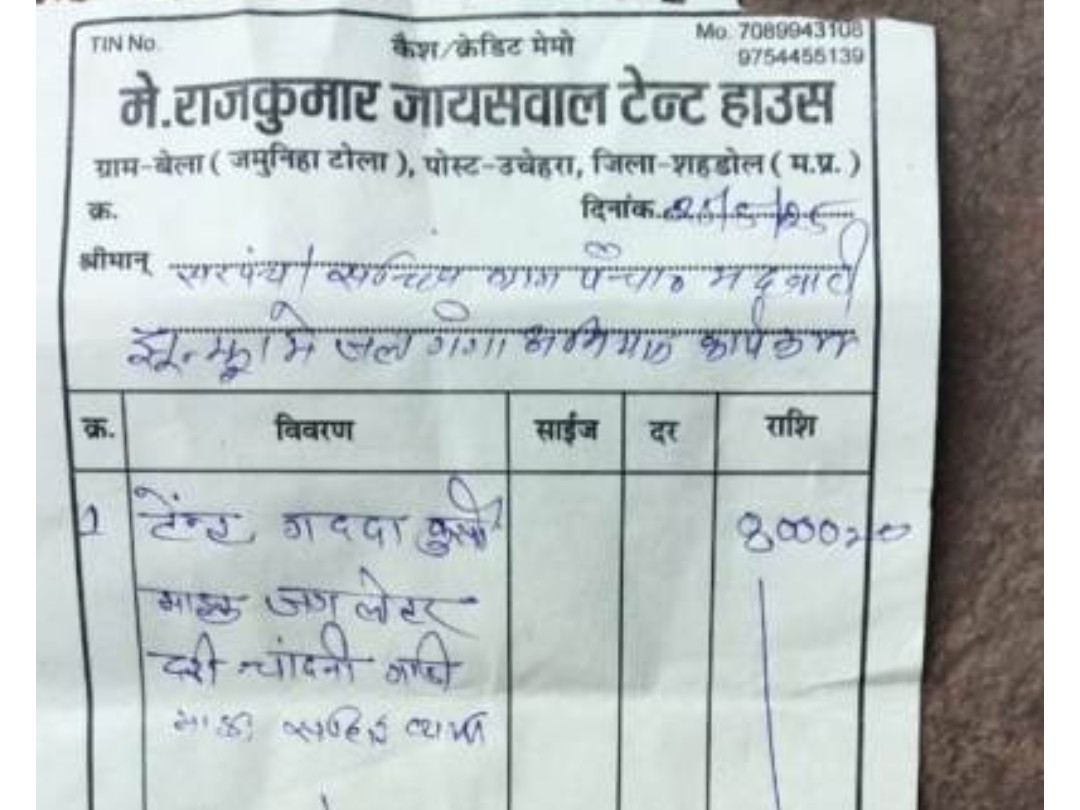 TIN No. कैश/क्रेडिट मेमो Mo. 7089943108
9754455139
मे.राजकुमार जायसवाल टेन्ट हाउस
ग्राम-बेला ( जमुनिहा टोला ), पोस्ट-उचेहरा, जिला-शहडोल ( म.प्र. )
क्र. दिनांक
श्रीमान् सरपंच/सचिव ग्राम पंचा०
में जल गंगा कार्यक्रम
क्र. विवरण साईज दर राशि
1 टेन्ट, गददा कुर्सी
माइक जग
दरी चांदनी गाडी
भाडा सहित